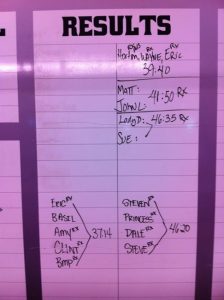 RESULTS
WAYNE, ERIC
39:40
MATT:
JOHN L:
41:50 RX
LOUD D:
46:35 RX
SUE:
ERIC RX
BASEL
AMY RX
CLINT RX
BMP RX
37:14
STEVEN RX
PRINCESS RX
DALE RX
STEVE RX
46:20